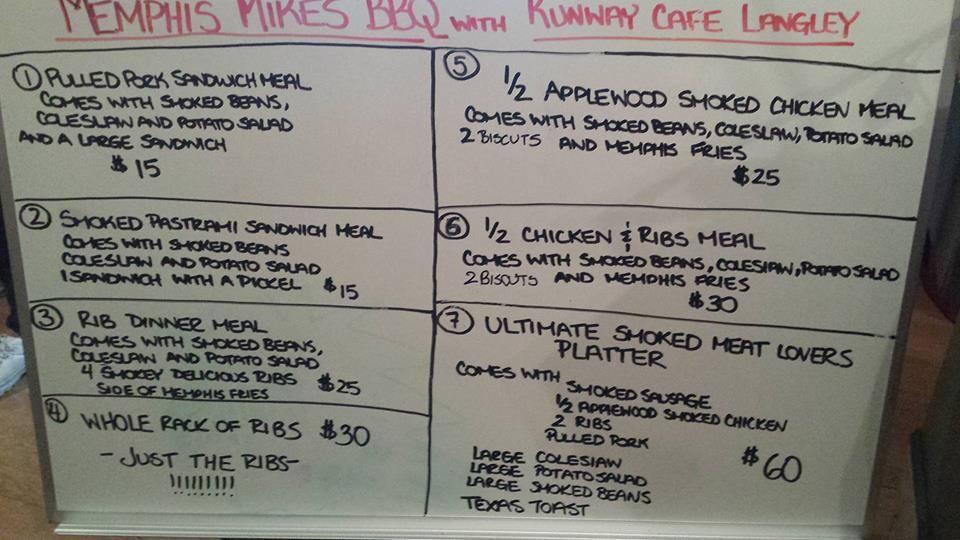 MEMPHIS MIKES BBQ WITH RUNWAY CAFE LANGLEY
① PULLED PORK SANDWICH MEAL
COMES WITH SMOKED BEANS,
COLESLAW AND POTATO SALAD
AND A LARGE SANDWICH
$15
② SMOKED PASTRAMI SANDWICH MEAL
COMES WITH SMOKED BEANS
COLESLAW AND POTATO SALAD
1 SANDWICH WITH A PICKEL $15
③ RIB DINNER MEAL
COMES WITH SMOKED BEANS,
COLESLAW AND POTATO SALAD
4 SMOKEY DELICIOUS RIBS $25
SIDE OF MEMPHIS FRIES
④ WHOLE RACK OF RIBS $30
-JUST THE RIBS-
!!!!!!!!!
⑤ 1/2 APPLEWOOD SMOKED CHICKEN MEAL
COMES WITH SMOKED BEANS, COLESLAW, POTATO SALAD
2 BISCUTS AND MEMPHIS FRIES
$25
⑥ 1/2 CHICKEN & RIBS MEAL
COMES WITH SMOKED BEANS, COLESLAW, POTATO SALAD
2 BISCUTS AND MEMPHIS FRIES
$30
⑦ ULTIMATE SMOKED MEAT LOVERS
PLATTER
COMES WITH SMOKED SAUSAGE
1/2 APPLEWOOD SMOKED CHICKEN
2 RIBS
PULLED PORK
LARGE COLESLAW
LARGE POTATO SALAD
LARGE SMOKED BEANS
TEXAS TOAST
$60